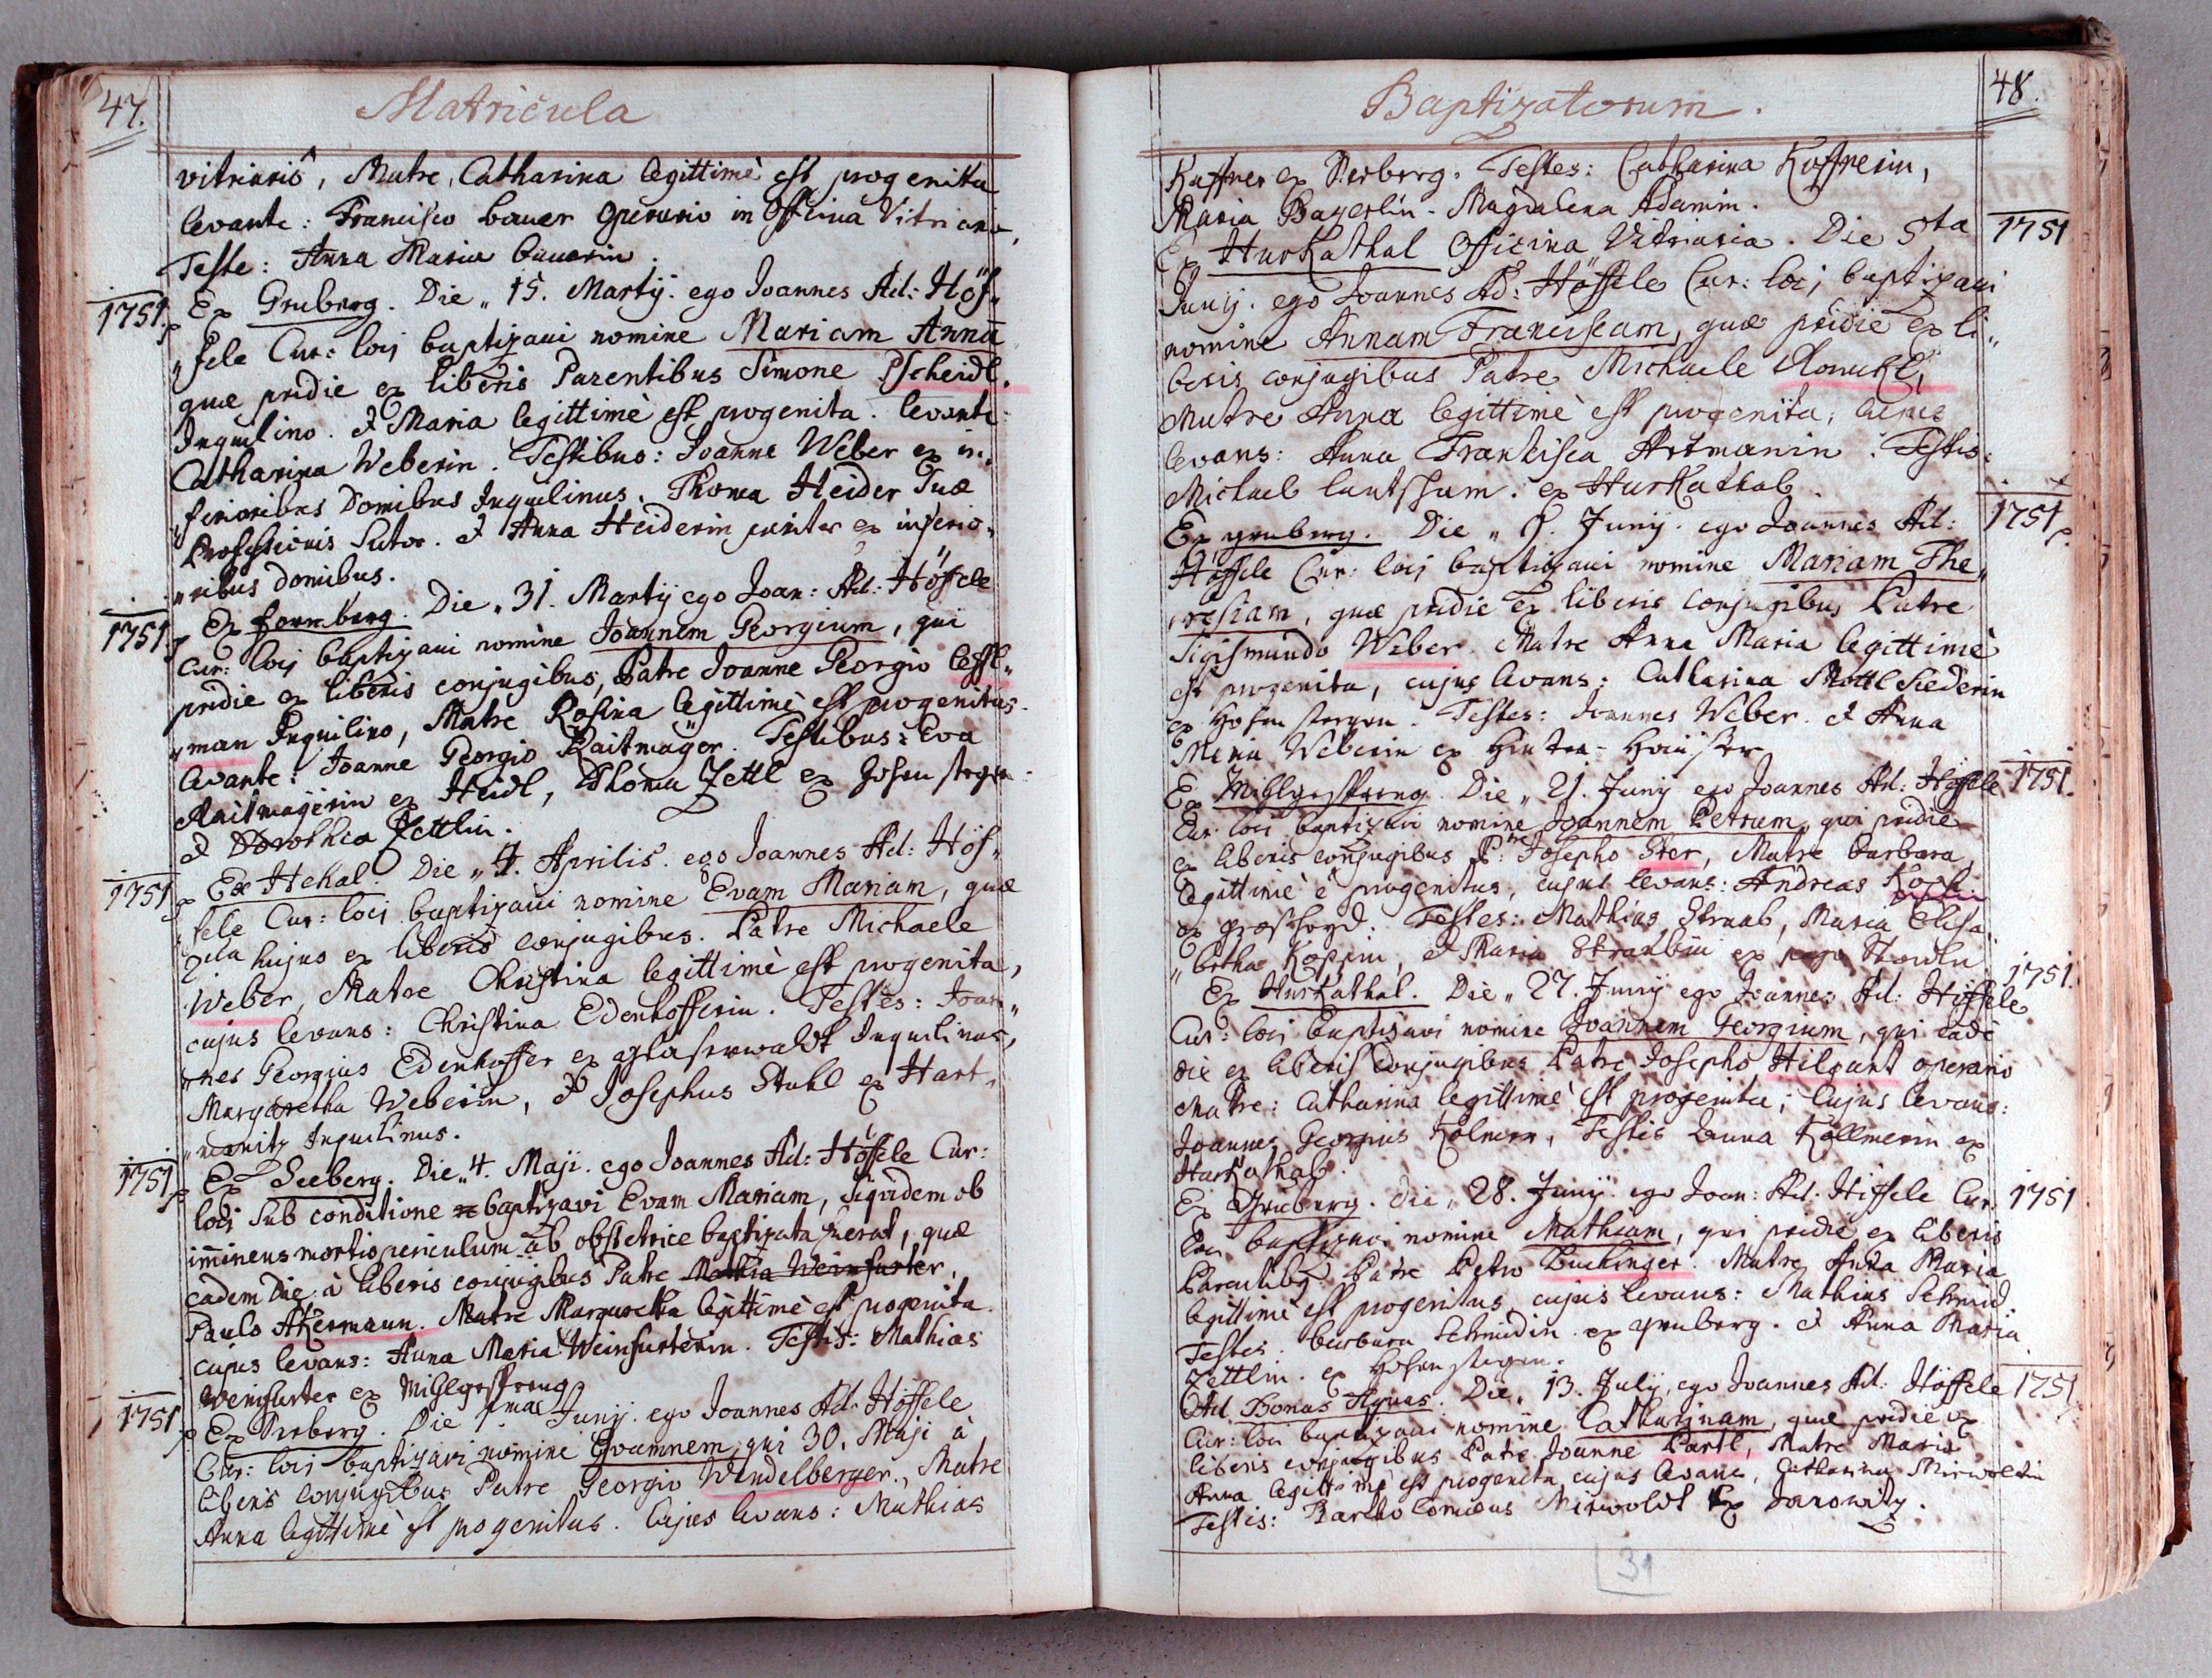 47.
Matricula
vitriariô, Matre, Catharina legittimè est progenita
levante: Francisco bauer operario in Officina Vitriaria,
Teste: Anna Maria bauerin.
1751
Ex Gruberg. Die „ 15. Martÿ. ego Joannes Ad: Höf„
„fele Cur: locj baptizavi nomine Mariam Annā
quæ pridie ex liberis Parentibus Simone Pscheidl.
Inquilino. & Maria legittimè est progenita. levante:
Catharina Weberin. Testibus: Joanne Weber ex in„
„ferioribus Domibus Inquilinus. Thoma Heider suæ
Professionis Sutor. & Anna Heiderin pariter ex inferio„
„ribus domibus.
1751
Ex Ferenberg. Die „ 31. Martÿ ego Joan: Ad: Höffele
Cur: locj baptizavi nomine Joannem Georgium, qui
pridie ex liberis conjugibus, Patre Joanne Georgio Leffl„
„man Inquilino, Matre Rosina legittimè est progenitus.
levante: Joanne Georgio Raitmaÿer. Testibus: Eva
Raitmaÿerin ex Heidl, Thoma Zettl ex Hohen stegen
& Dorothea Zettlin.
1751
Ex Hehal. Die „ 4. Aprilis. ego Joannes Ad: Höf„
„fele Cur: locj baptizavi nomine Evam Mariam, quæ
2da hujus ex liberis conjugibus. Patre Michaele
Weber, Matre Christina legittimè est progenita,
cujus levans: Christina Edenhofferin. Testes: Joan„
„nes Georgius Edenhoffer ex glaserwaldt Inquilinus,
Margaretha Weberin, & Josephus Stahl ex Hart„
„manitz Inquilinus.
1751
Ex Seeberg. Die „ 4. Maji. ego Joannes Ad: Höffele Cur:
locj sub conditione re baptizavi Evam Mariam, siquidem ob
im̄inens mortis periculum ab obstetrice baptizata fuerat, quæ
eadem Die à liberis conjugibus Patre Mathia Weinfurter,
Paulo Akermann. Matre Margaretha legittimè est progenita.
cujus levans: Anna Maria Weinfurterin. Testis: Mathias
Weinfurter ex Mihlgespreng
1751
Ex Seeberg. Die 1mae Junÿ. ego Joannes Ad: Höffele
Cur: locj baptizavi nomine Joannem, qui 30. Maji à
liberis conjugibus Patre Georgio Wendelberger., Matre
Anna legittimè est progenitus. Cujus levans: Mathias
Baptizatorum.
48.
Kaffner ex Seeberg. Testes: Catharina Koffnerin,
Maria Bayerlin. Magdalena Adamin.
1751
Ex Hurkathal Officina Vitriaria. Die 5ta
Junÿ. ego Joannes Ad: Höffele Cur: locj baptizavi
nomine Annam Franciscam, quæ pridie ex li„
beris conjugibus Patre Michaele
Matre Anna legittimè est progenita, cujus
levans: Anna Frantisca Artmanin. Testis:
Michael ex Hurkathal.
1751
Ex gruberg. Die „ 9. Junÿ. ego Joannes Ad:
Höffele Cur: locj baptizavi nomine Mariam The„
„resiam, quæ pridie ex liberis conjugibus Patre
Sigismundo Weber. Matre Anna Maria legittimè
est progenita, cujus levans: Catharina
ex Hohen stegen. Testes: Joannes Weber. & Anna
Maria Weberin ex Hinter-Haüser
1751.
Ex Mihlgespreng. Die „ 21. Junÿ ego Joannes Ad: Höffele
Cur: locj baptizavi nomine Joannem Petrum, qui pridie
ex liberis conjugibus P:tre Josepho Ster, Matre barbara,
legittimè ē progenitus, cujus levans: Andreas
ex Testes: Mathias Straub, Maria Elisa„
„betha & Maria Straubin ex pago
1751.
Ex Hurkathal. Die „ 27. Junÿ ego Joannes Ad: Höffele
Cur: locj baptizavi nomine Joannem Georgium, qui eadē
die ex liberis conjugibus Patre Josepho Hilgart operario
Matre: Catharina legittimè est progenitus; Cujus levans:
Joannes Georgius Testis Anna Kollmerin ex
Hurkathal
1751
Ex Gruberg. Die „ 28. Junÿ. ego Joan: Ad: Höffele Cur.
loci baptizavi nomine Mathiam, qui pridie ex liberis
Parentibus Patre Petro Buchinger. Matre Anna Maria
legittimè est progenitus cujus levans: Mathias Schmid
Testes: barbara Schmidin. ex gruberg. & Anna Maria
Zettlin. ex Hohen stegen.
1751
Ad Bonas Aquas. Die „ 13. Julÿ, ego Joannes Ad: Höffele
Cur: loci baptizavi nomine Catharinam, quæ pridie ex
liberis conjugibus Patre Joanne Partl, Matre Maria
Anna legittimè est progenita cujus levans, Catharina Mirwoldin
Testis: Bartholomæus Mirwoldt Ex Janowitz.
31